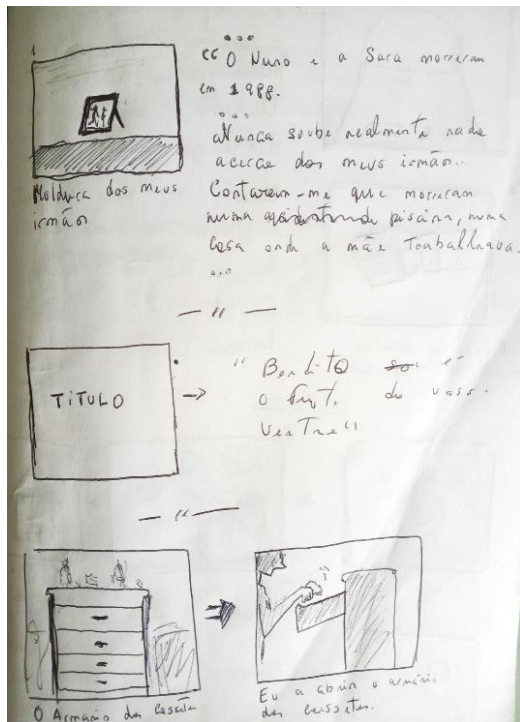 1
...
"O Nuno e a Sara morreram
em 1988.
...
"Nunca soube realmente nada
acerca dos meus irmãos..
Moldura dos meus
irmãos
Contaram-me que morreram
numa piscina, numa
casa onde a mãe trabalhava.
...
— " —
TÍTULO
"Bendito é
o fruto do vosso
ventre"
— " —
O Armário das Cassetes
Eu a abrir o armário
das cassetes.